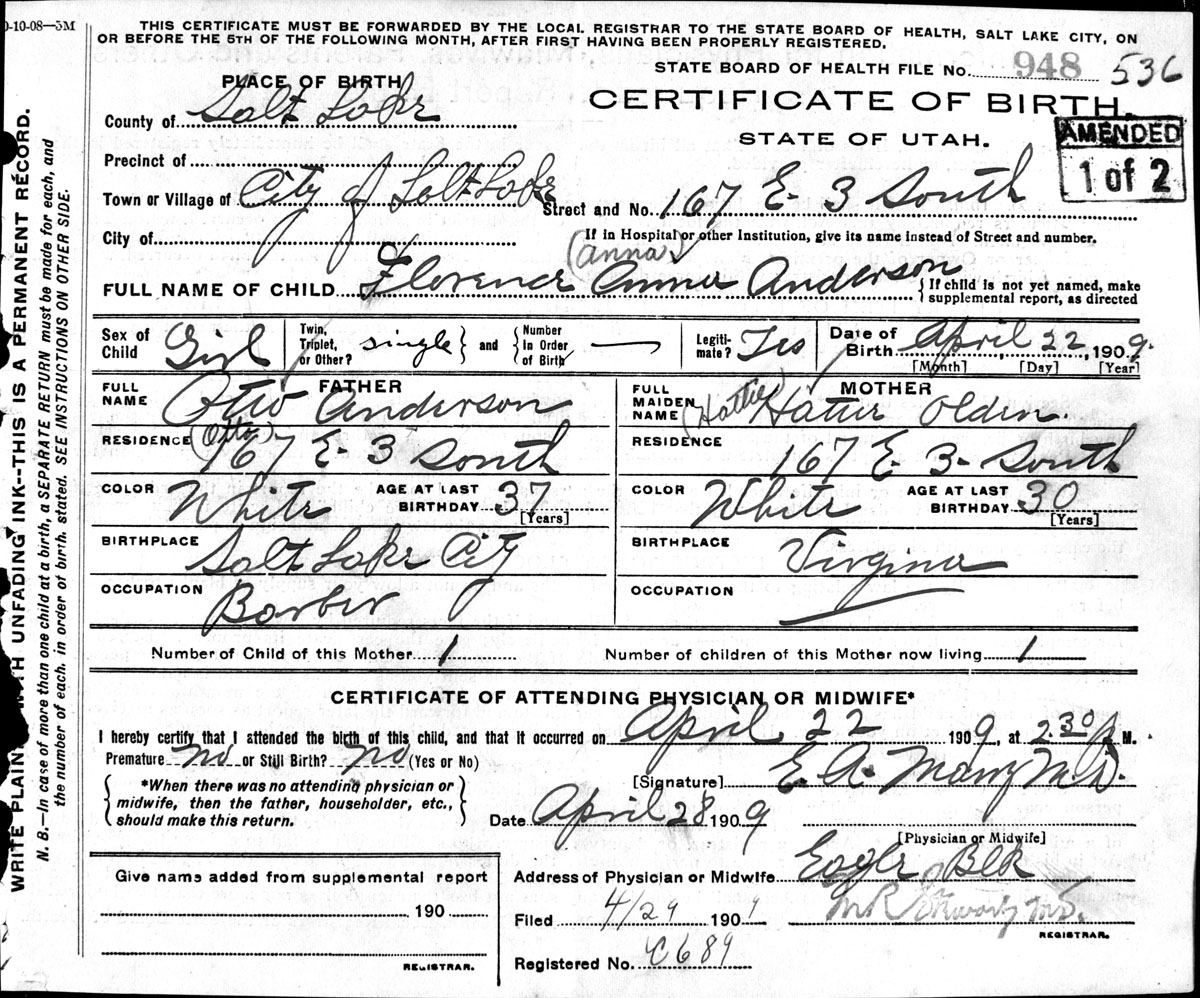 0-10-08—3M
THIS CERTIFICATE MUST BE FORWARDED BY THE LOCAL REGISTRAR TO THE STATE BOARD OF HEALTH, SALT LAKE CITY, ON
OR BEFORE THE 5TH OF THE FOLLOWING MONTH, AFTER FIRST HAVING BEEN PROPERLY REGISTERED.
STATE BOARD OF HEALTH FILE No. 948 536
PLACE OF BIRTH
CERTIFICATE OF BIRTH.
STATE OF UTAH.
AMENDED
1 of 2
County of Salt Lake
Precinct of
Town or Village of City of Salt Lake Street and No. 167 E 3 South
City of
If in Hospital or other Institution, give its name instead of Street and number.
(Anna)
FULL NAME OF CHILD Florence Anna Anderson
{If child is not yet named, make
supplemental report, as directed
Sex of Child Girl
Twin, Triplet, or Other? single } and { Number In Order of Birth —
Legiti-mate? Yes
Date of Birth April 22, 1909.
[Month] [Day] [Year]
FATHER
FULL NAME Otto Anderson
(Otto)
RESIDENCE 167 E 3 South
COLOR White AGE AT LAST BIRTHDAY 37 [Years]
BIRTHPLACE Salt Lake City
OCCUPATION Barber
MOTHER
FULL MAIDEN NAME (Hattie) Hattie Olden
RESIDENCE 167 E 3 South
COLOR White AGE AT LAST BIRTHDAY 30 [Years]
BIRTHPLACE Virginia
OCCUPATION —
Number of Child of this Mother 1 Number of children of this Mother now living 1
CERTIFICATE OF ATTENDING PHYSICIAN OR MIDWIFE*
I hereby certify that I attended the birth of this child, and that it occurred on April 22 1909, at 2 30 P. M.
Premature no or Still Birth? no (Yes or No)
[Signature] E. A. M.D.
{ *When there was no attending physician or
midwife, then the father, householder, etc.,
should make this return. }
Date April 28 1909
[Physician or Midwife]
Address of Physician or Midwife Eagle Blk
Filed 4/29 1909
M.D.
REGISTRAR.
Registered No. C689
Give name added from supplemental report
190
REGISTRAR.
WRITE PLAIN UNFADING INK--THIS IS A PERMANENT RECORD.
N. B.—In case of more than one child at a birth, a SEPARATE RETURN must be made for each, and
the number of each, in order of birth, stated. SEE INSTRUCTIONS ON OTHER SIDE.